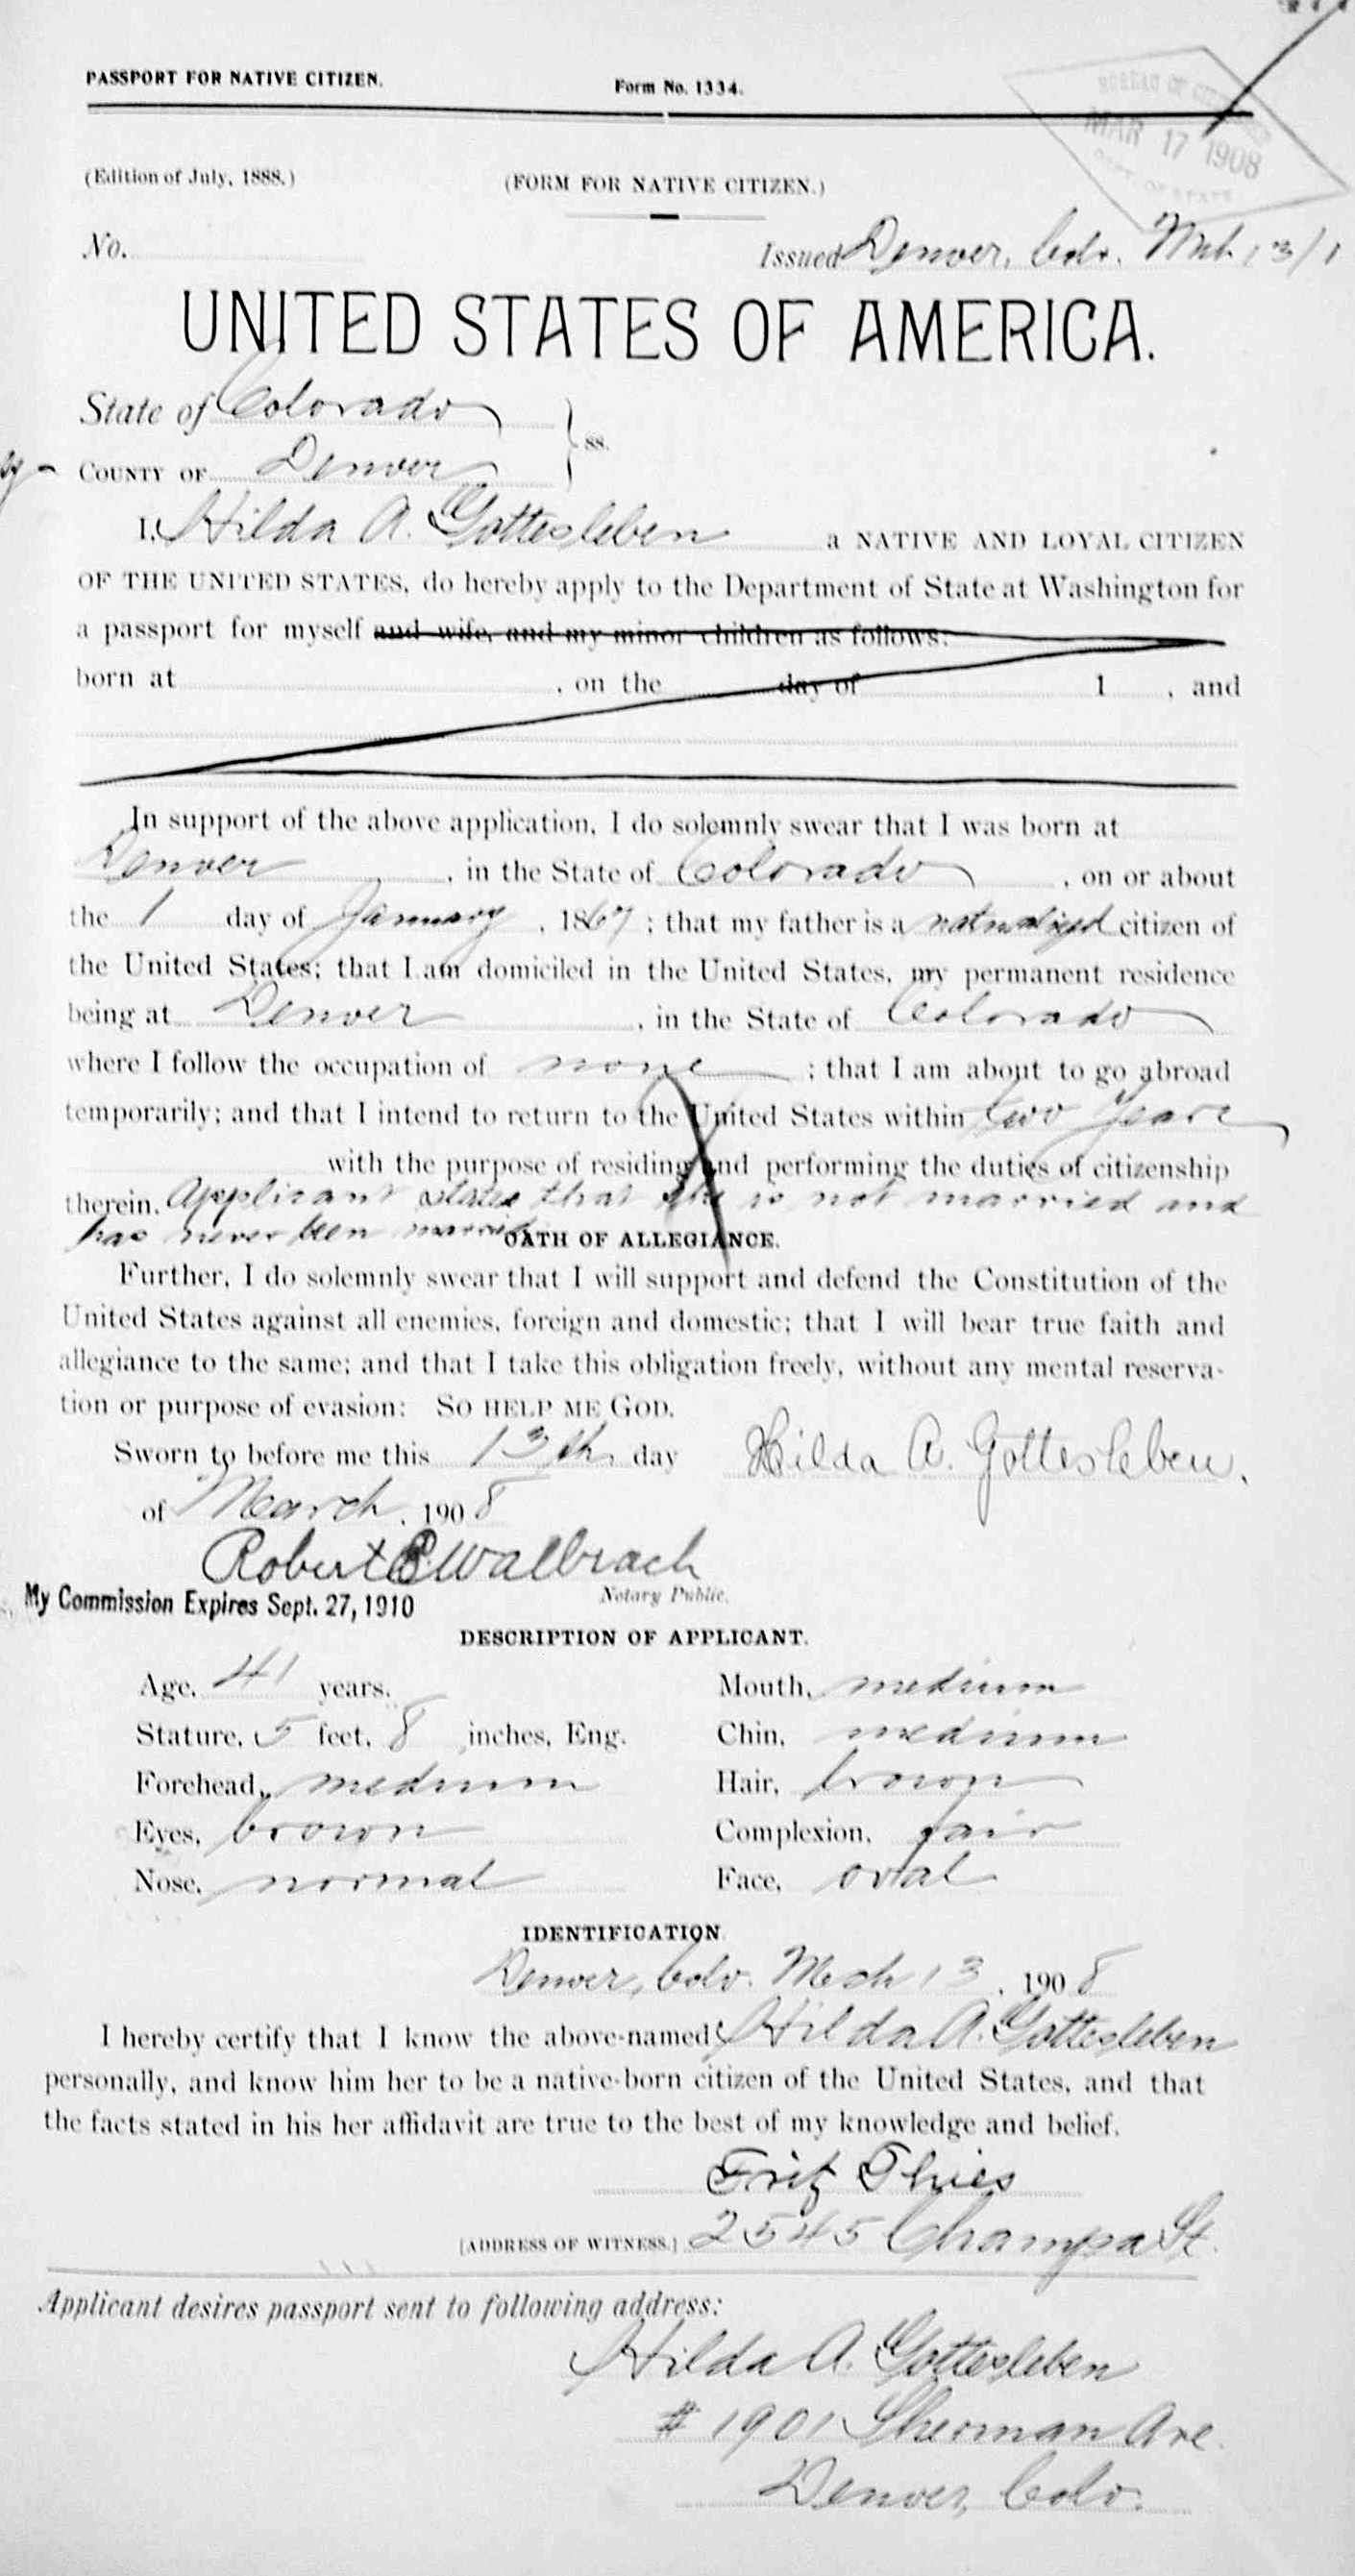 PASSPORT FOR NATIVE CITIZEN. Form No. 1334.
BUREAU OF CITIZENSHIP
MAR 17 1908
DEPT. OF STATE
(Edition of July, 1888.) (FORM FOR NATIVE CITIZEN.)
No. Issued Denver, Colo. Mch. 13/
UNITED STATES OF AMERICA.
State of Colorado
COUNTY OF Denver } ss.
I, Hilda A. Gottesleben a NATIVE AND LOYAL CITIZEN
OF THE UNITED STATES, do hereby apply to the Department of State at Washington for
a passport for myself and wife, and my minor children as follows:
born at , on the day of 1 , and
In support of the above application, I do solemnly swear that I was born at
Denver , in the State of Colorado , on or about
the 1 day of January , 1867 ; that my father is a naturalized citizen of
the United States; that I am domiciled in the United States, my permanent residence
being at Denver , in the State of Colorado
where I follow the occupation of none ; that I am about to go abroad
temporarily; and that I intend to return to the United States within two years
with the purpose of residing and performing the duties of citizenship
therein. Applicant states that she is not married and
has never been married
OATH OF ALLEGIANCE.
Further, I do solemnly swear that I will support and defend the Constitution of the
United States against all enemies, foreign and domestic; that I will bear true faith and
allegiance to the same; and that I take this obligation freely, without any mental reserva-
tion or purpose of evasion: SO HELP ME GOD.
Sworn to before me this 13th. day Hilda A. Gottesleben.
of March , 1908
Robert B Walbrach
Notary Public.
My Commission Expires Sept. 27, 1910
DESCRIPTION OF APPLICANT.
Age, 41 years. Mouth, medium
Stature, 5 feet, 8 inches, Eng. Chin, medium
Forehead, medium Hair, brown
Eyes, brown Complexion, fair
Nose, normal Face, oval
IDENTIFICATION
Denver, Colo. Mch 13 , 1908
I hereby certify that I know the above-named Hilda A. Gottesleben
personally, and know him her to be a native-born citizen of the United States, and that
the facts stated in his her affidavit are true to the best of my knowledge and belief.
Fritz Thies
[ADDRESS OF WITNESS.] 2545 Champa St.
Applicant desires passport sent to following address:
Hilda A. Gottesleben
# 1901 Sherman Ave.
Denver, Colo.